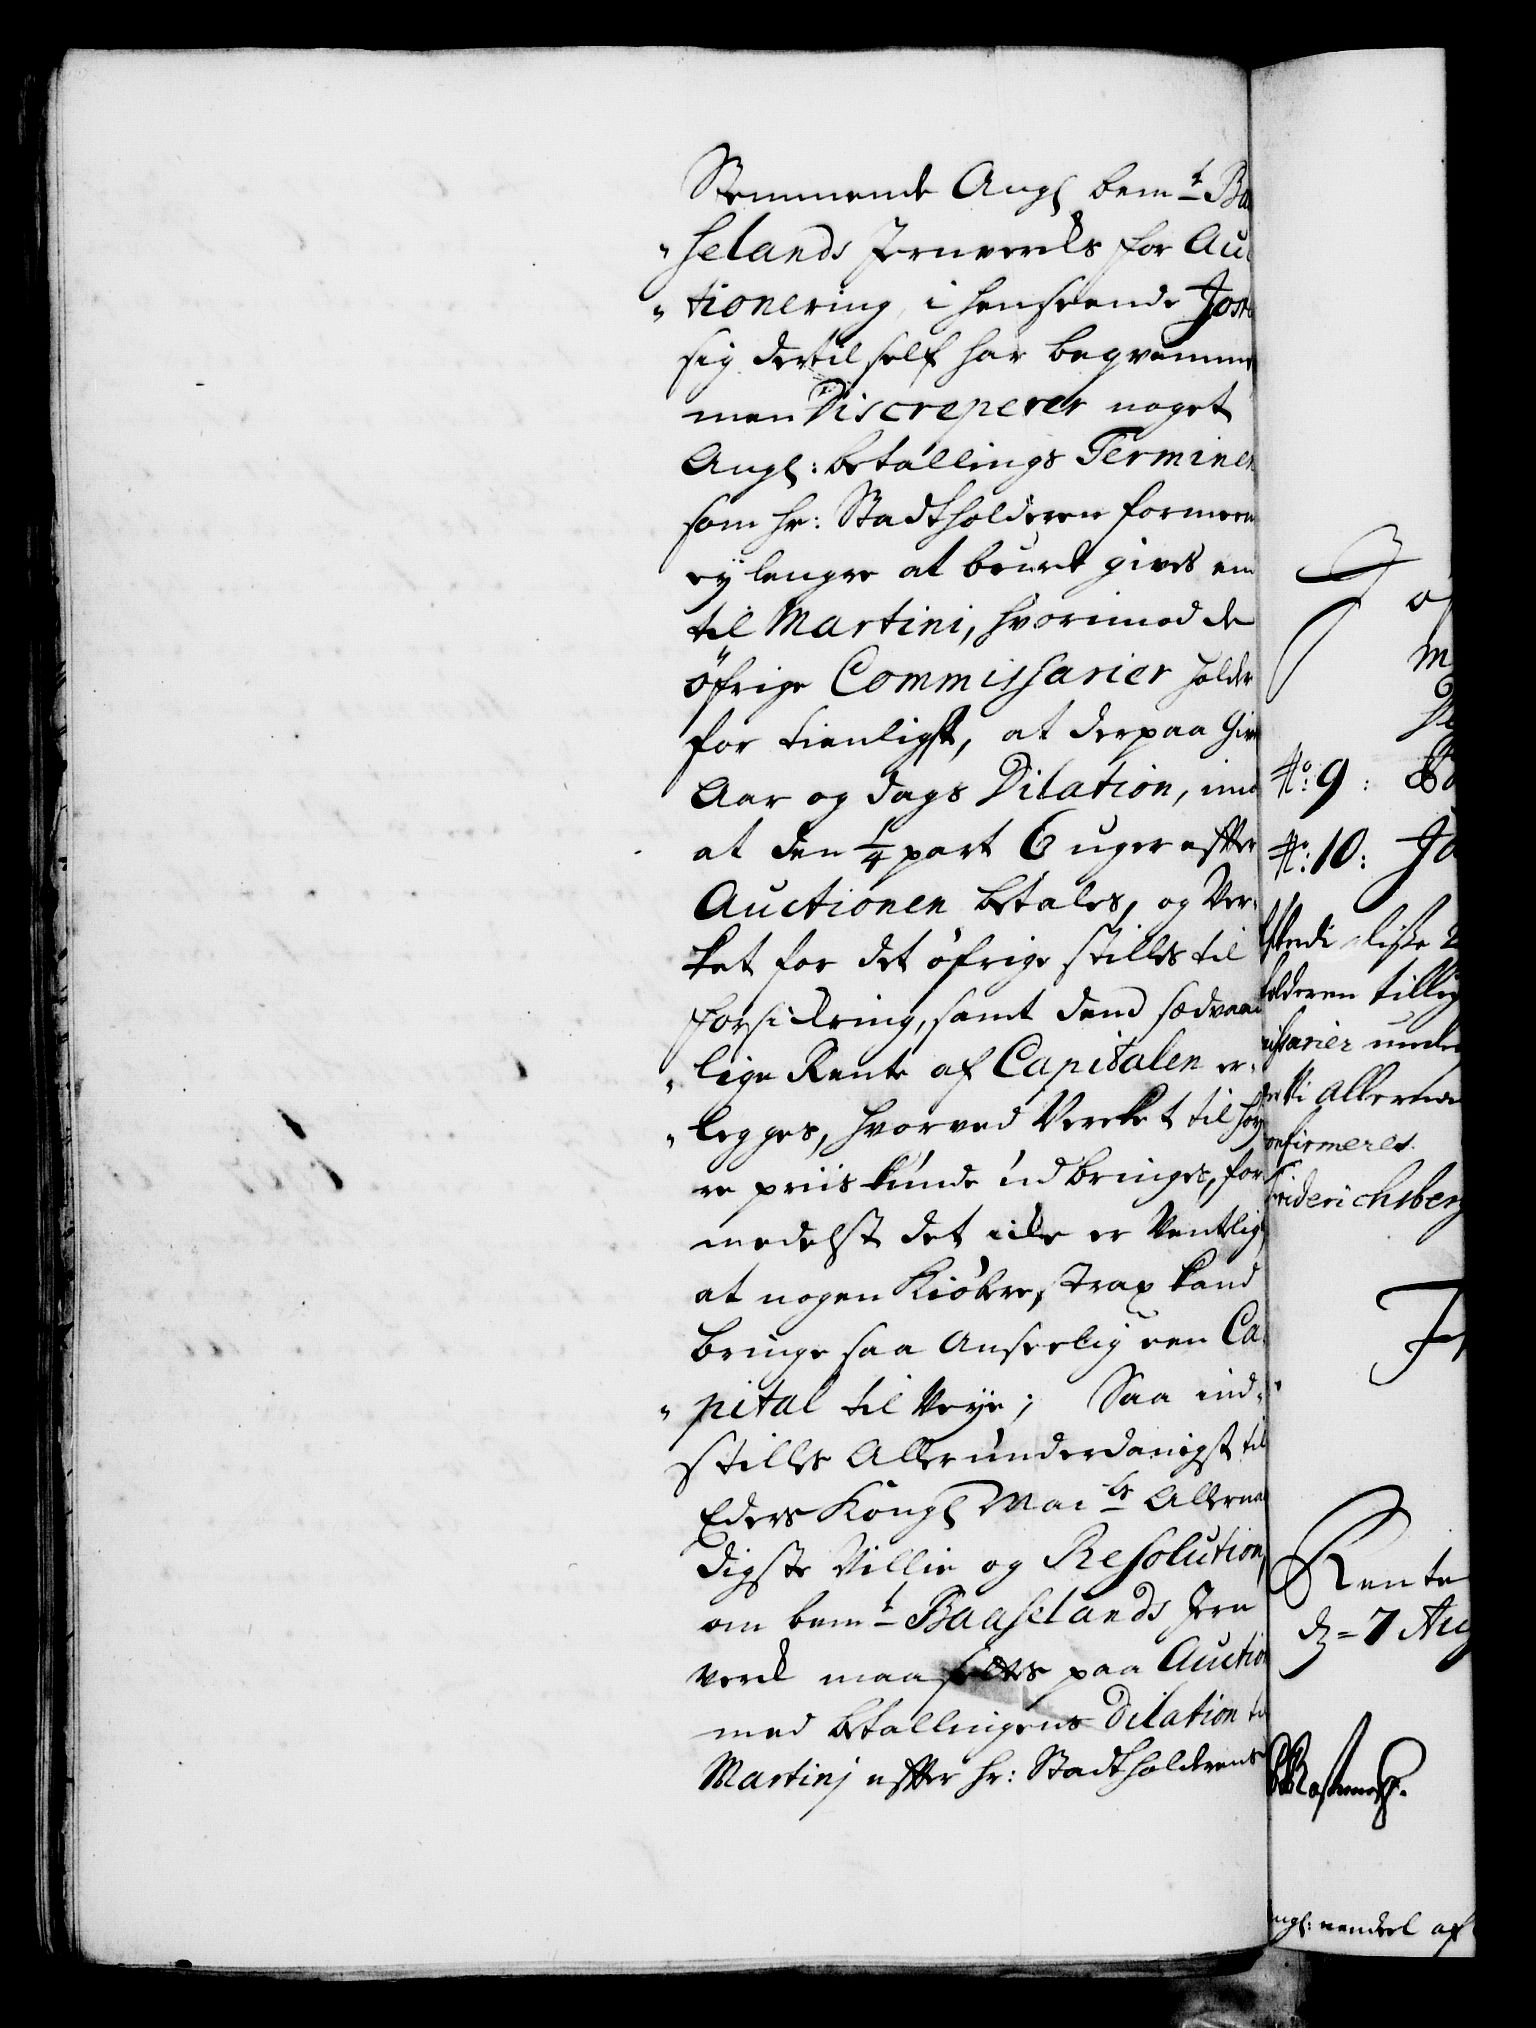 Stemmende Ang&l bemt Ba
selands Jernvercks for Auc
tionering, i henseende Jost
sig dertil self har beqvemme
men Discreperer noget
Angl: betallings Terminen
som hr: Stadtholderen formeen
ey lengre at burde gives end
til Martini, hvorimod de
öfrige Commissarier holder
for tienligst, at derpaa Give
Aar og dags Dilation, imod
at den 1/4 part 6 uger effter
Auctionen betales, og Ver-
ket for det öfrige stilles til
forsickring, samt dend sædvaan
lige Rente af Capitalen er-
legges, hvorved Vercket til høy
re priis kunde udbringes, for
medelst det icke er Ventligt
at nogen Kiöbere, strax kand
bringe saa Anseelig een Ca-
pital til Veye; Saa ind-
stilles Allerunderdanigst til
Eders Kongl Mai ts Allernaa
digste Villie og Resolution,
om bemt Baaselands Jern
verck maa settes paa Auction
med betallingens Dilation til
Martinj effter hr: Stadtholderens
No: 9:
No: 10: Jo
disse
holderen tillig
issarier
Allernaa
onfirmeret.
Friderichsberg
Rente
d= 7 Aug
angl: eendeel af